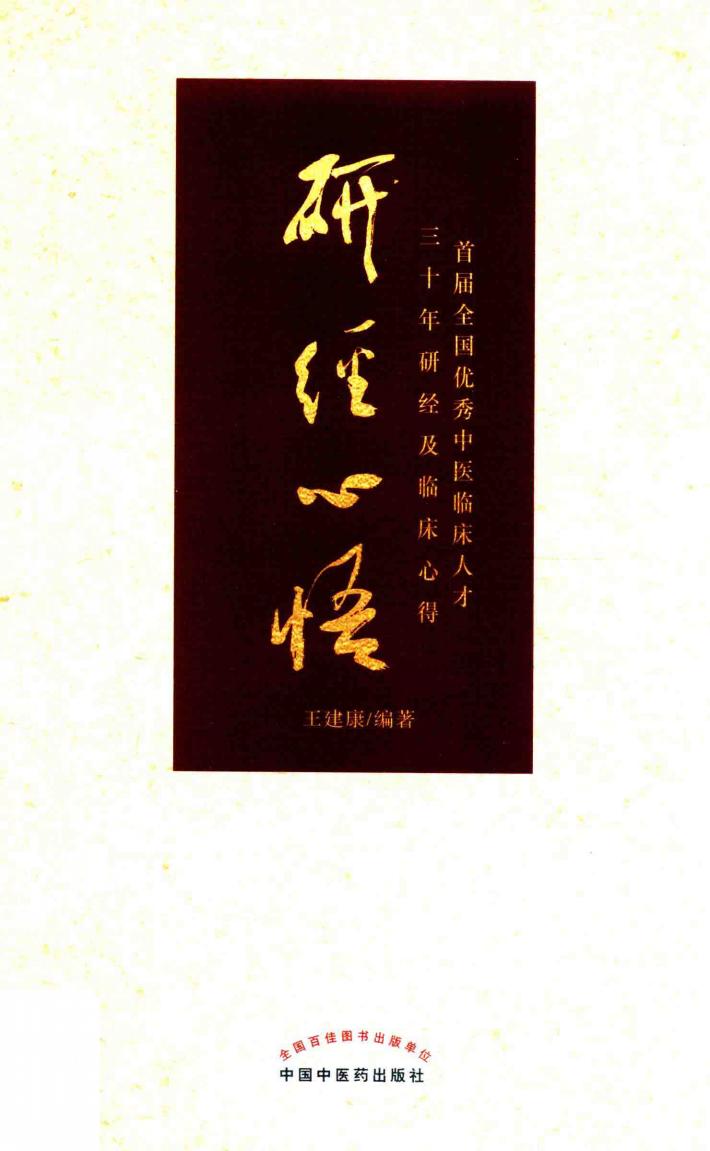 首届全国优秀中医临床人才
三十年研经及临床心得
研經心悟
王建康/编著
全国百佳图书出版单位
中国中医药出版社